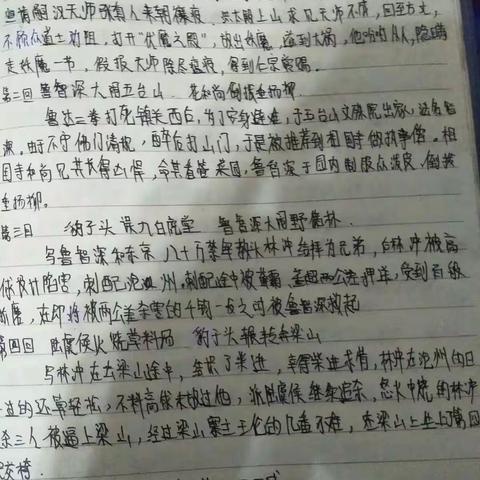 迎请嗣汉天师张真人来朝禳疫。洪太尉上山求见天师不得,回至方丈,
不顾众道士劝阻,打开"伏魔之殿",放出妖魔,遭到大祸,他吩咐从人,隐瞒
走妖魔一节,假报天师除尽瘟疫,得到仁宗赏赐。
第二回 鲁智深大闹五台山 花和尚倒拔垂杨柳
鲁达三拳打死镇关西后,为了安身避难,于五台山文殊院出家,法名智
深。由于不守佛门清规,醉后打山门,于是被推荐到相国寺做执事僧。相
国寺和尚见其长得凶悍,令其看管菜园,鲁智深于园内制服众泼皮,倒拔
垂杨柳。
第三回 豹子头误入白虎堂 鲁智深大闹野猪林
鲁智深和东京八十万禁军教头林冲结拜为兄弟,但林冲被高
俅设计陷害,刺配沧州,刺配途中被董超、薛霸两公差押送,受到百般
折磨,在即将被两公差杀害的千钧一发之时被鲁智深救起
第四回 陆虞侯火烧草料场 豹子头辗转奔梁山
林冲在去梁山途中,结识了柴进,幸得柴进求情,林冲在沧州的日
过的还算轻松,不料高俅未放过他,派陆虞侯继续追杀,怒火中烧的林冲
杀三人被逼上梁山,经过梁山寨主王伦的几番不难,在梁山上坐了第四
交椅.